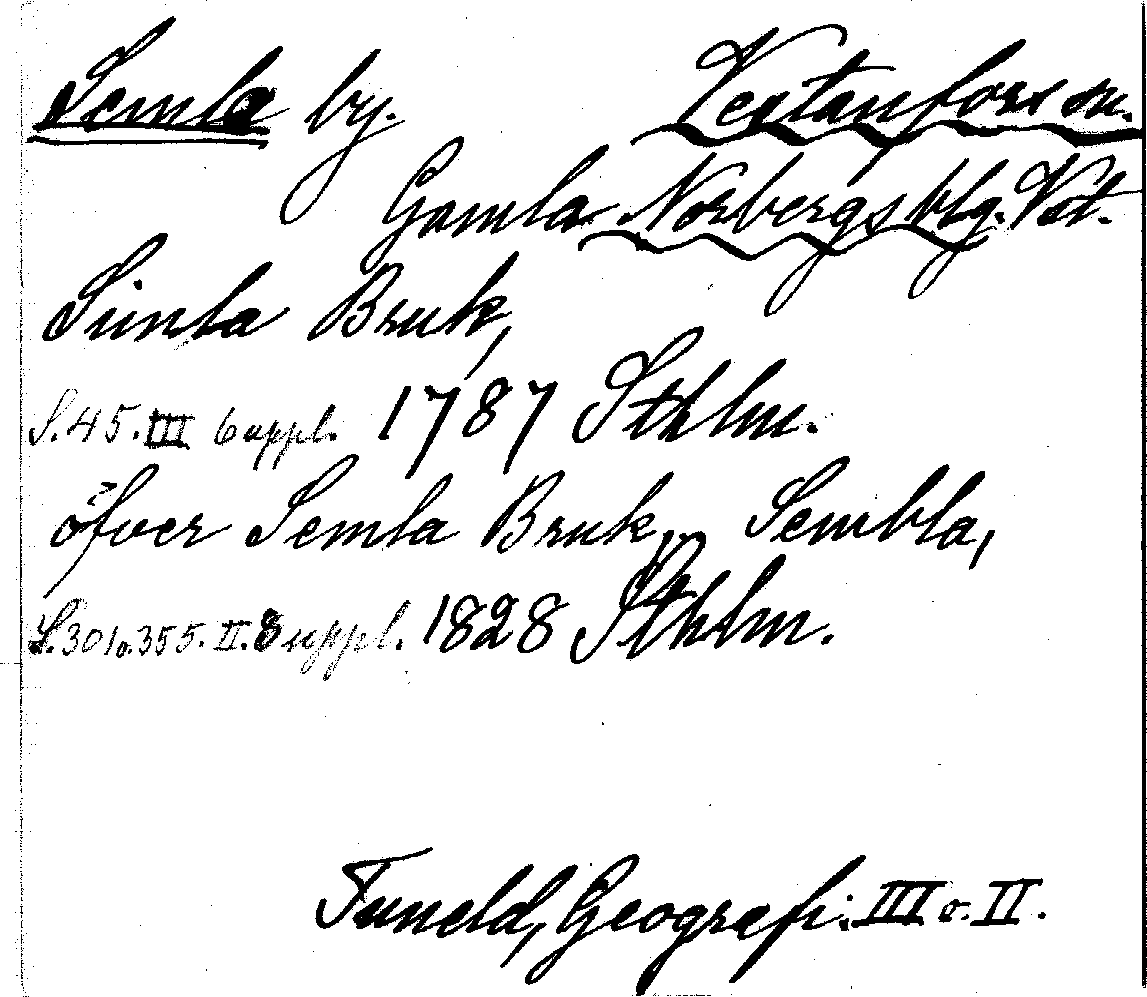 Semla by. Vestanfors sn.
Gamla Norbergs blg. Vstm.
Simla Bruk,
S. 45. III 6 uppl. 1787 Sthlm.
öfver Semla Bruk, Sembla,
S. 301 o. 355. II. 8 uppl. 1828 Sthlm.
Tuneld, Geografi. III o. II.